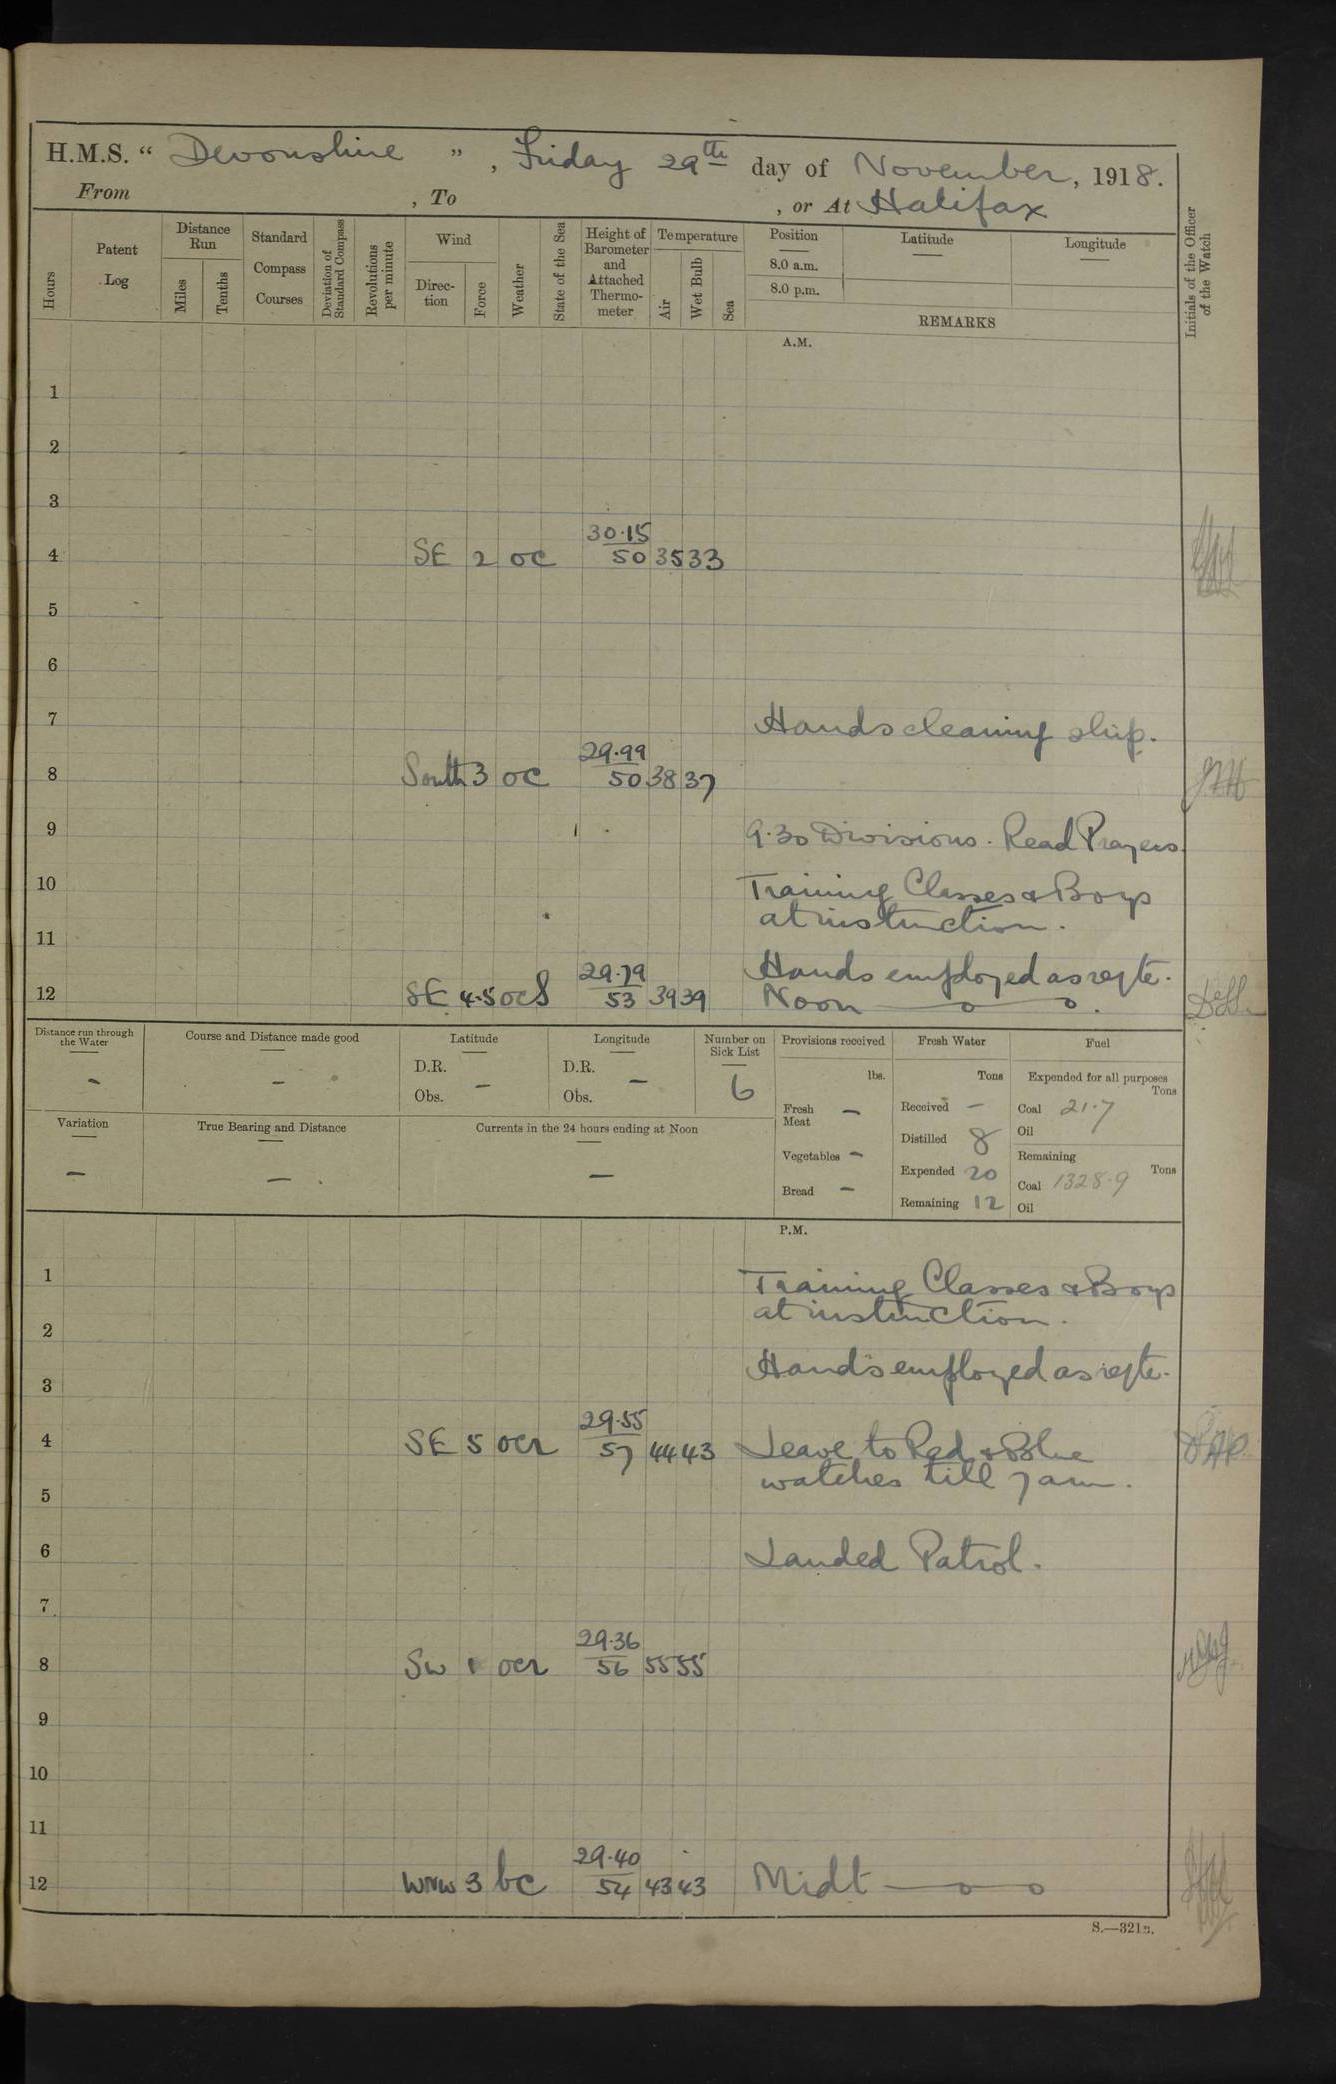 H.M.S. “ Devonshire ” , Friday 29th day of November, 1918.
From , To , or At Halifax
Hours
Patent Log
Distance Run
Miles
Tenths
Standard Compass Courses
Deviation of Standard Compass
Revolutions per minute
Wind
Direction
Force
Weather
State of the Sea
Height of Barometer and Attached Thermometer
Temperature
Air
Wet Bulb
Sea
Position
8.0 a.m.
8.0 p.m.
Latitude
Longitude
REMARKS
Initials of the Officer of the Watch
A.M.
1
2
3
30.15
4 SE 2 oc 50 35 33
5
6
7 Hands cleaning ship.
29.99
8 South 3 oc 50 38 37
9 9.30 Divisions. Read Prayers.
10 Training Classes & Boys
at instruction.
11
Hands employed as reqte.
29.79
12 SE 4.5 ocs 53 39 39 Noon
Distance run through the Water
–
Course and Distance made good
–
Latitude
D.R.
Obs. –
Longitude
D.R.
Obs. –
Number on Sick List
6
Provisions received
lbs.
Fresh Meat –
Vegetables –
Bread –
Fresh Water
Tons
Received –
Distilled 8
Expended 20
Remaining 12
Fuel
Expended for all purposes
Tons
Coal 21.7
Oil
Remaining
Tons
Coal 1328.9
Oil
Variation
–
True Bearing and Distance
–
Currents in the 24 hours ending at Noon
–
P.M.
1 Training Classes & Boys
at instruction.
2
3 Hands employed as reqte.
29.55
4 SE 5 ocr 57 44 43 Leave to Red & Blue
watches till 7 am.
5
6 Landed Patrol.
7
29.36
8 SW 1 ocr 56 55 55
9
10
11
29.40
12 WNW 3 bc 54 43 43 Midt
S.—321